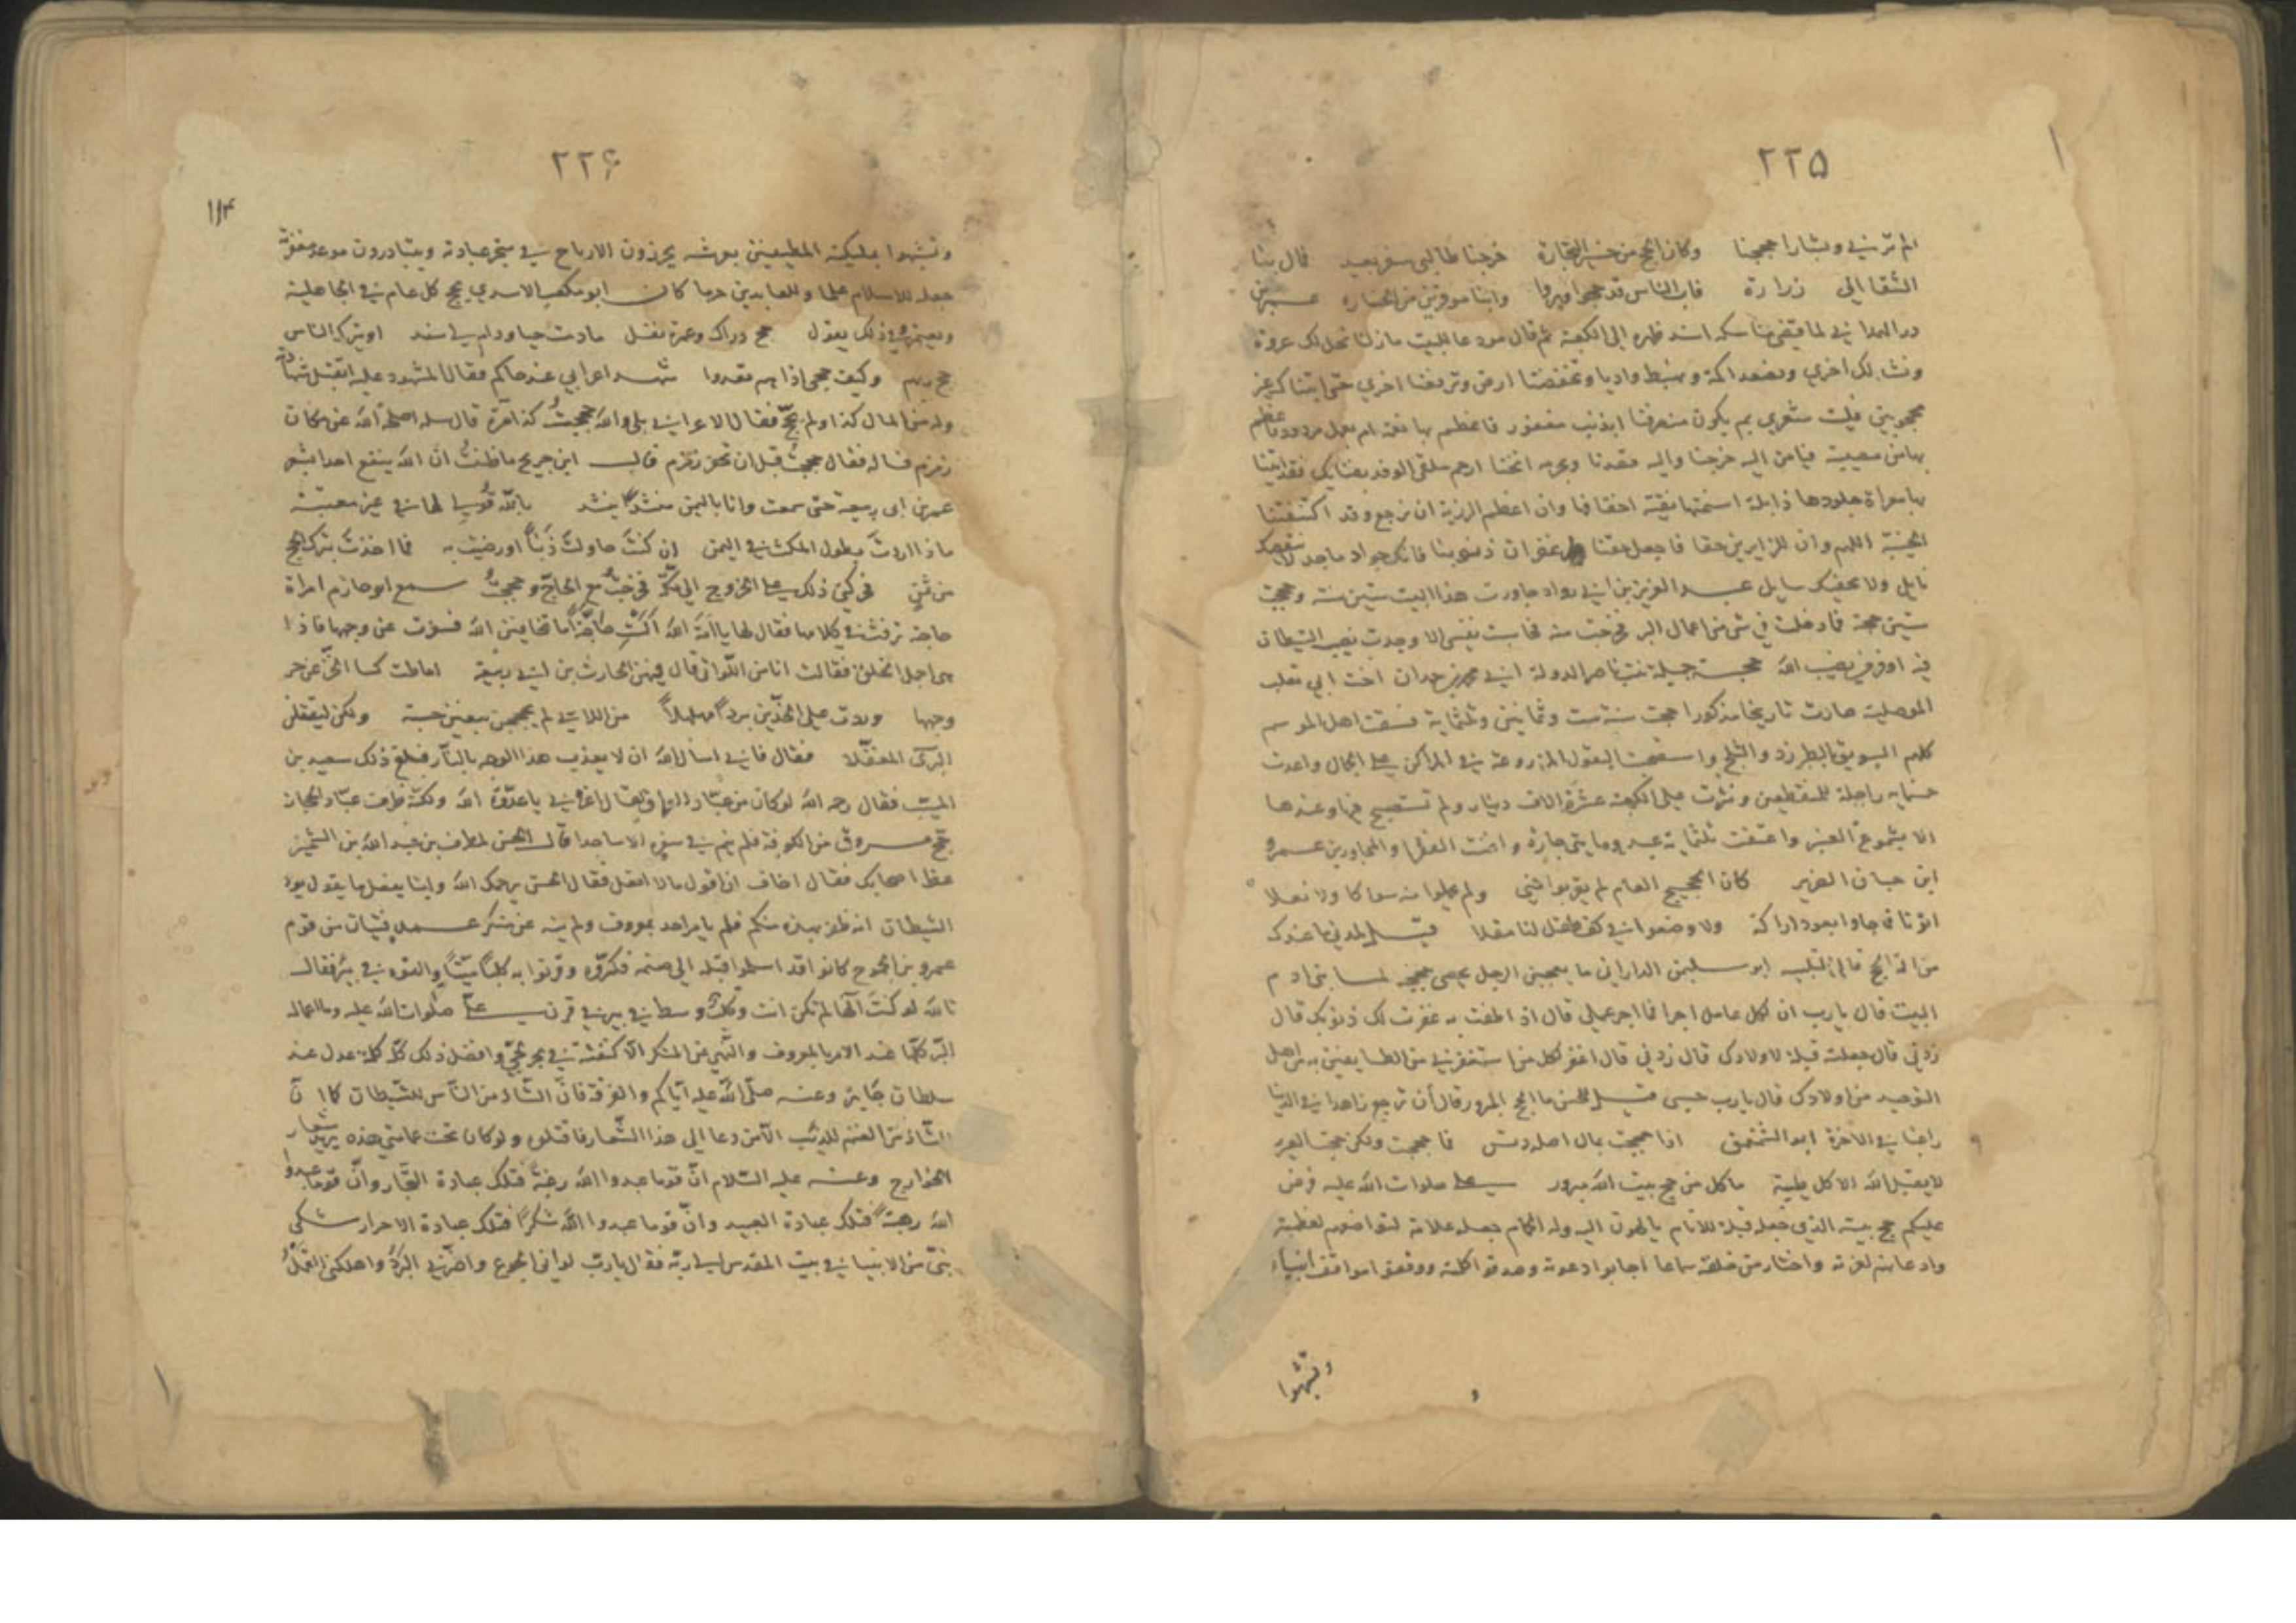 ٢٢٥
الم ترني وبشارا حججنا وكان الحج من خير التجارة خرجنا طالبي سفر بعيد فمال بنا
الشقا الى زرارة فاب الناس قد حجوا وبروا وابنا موقرين من الخسارة عمر بن
در الهمداني لما قضى مناسكه اسند ظهره الى الكعبة ثم قال مودعا للبيت مازلنا نحل لك عروة
ونشد لك اخرى ونصعد اكمة ونهبط واديا وتخفضنا ارض وترفعنا اخرى حتى اتيناك غير
محجوبين فليت شعري بم يكون منصرفنا ابذنب مغفور فاعظم بها نعمة ام بعمل مردود فاعظم
بها من مصيبة فيا من اليه خرجنا واليه قصدنا وبحرمه انخنا ارحم ملقى الوفد بفنائك فقد اتينا
بها معراة جلودها ذابلة اسنمتها نقبة اخفافها وان اعظم الرزية ان نرجع وقد اكتنفتنا
الخيبة اللهم وان للزايرين حقا فاجعل حقنا غفران ذنوبنا فانك جواد ماجد لا ينقصك
نايل ولا يحفيك سايل عبد العزيز بن ابي رواد جاورت هذا البيت ستين سنة وحججت
ستين حجة فما دخلت في شي من اعمال البر فخرجت منه فحاسبت نفسي الا وجدت نصيب الشيطان
فيه اوفر من نصيب الله حجت جميلة بنت ناصر الدولة ابي محمد بن حمدان اخت ابي تغلب
الموصلية صارت تاريخا مذكورا حجت سنة ست وثمانين وثلثماية فسقت اهل الموسم
كلهم السويق بالطبرزد والثلج واستصحبت البقول المزروعة في المراكن على الجمال واعدت
خمسماية راحلة للمنقطعين ونثرت على الكعبة عشرة الاف دينار ولم تستصبح فيها وعندها
الا بشموع العنبر واعتقت ثلثماية عبد ومايتي جارية واغنت الفقرا والمجاورين عمرو
ابن حيان الضرير كان الحجيج العام لم يقربوا منى ولم يحملوا منه سواكا ولا نعلا
اتونا فما جاوا بعود اراكة ولا وضعوا في كف طفل لنا مقلا
من الة الحج قال التلبية ابو سليمن الداراني ما يعجبني الرجل يحصي حججه لما بنى ادم
البيت قال يارب ان لكل عامل اجرا فما اجر عملي قال اذا طفت به غفرت لك ذنوبك قال
زدني قال جعلته قبلة لاولادك قال زدني قال اغفر لكل من استغفرني من الطايفين به من اهل
التوحيد من اولادك قال يارب حسبي قيل للحسن ما الحج المبرور قال ان ترجع زاهدا في الدنيا
راغبا في الاخرة ابو الشمقمق اذا حججت بمال اصله دنس فما حججت ولكن حجت العير
لا يقبل الله الا كل طيبة ما كل من حج بيت الله مبرور علي صلوات الله عليه فرض
عليكم حج بيته الذي جعله قبلة للانام يالهون اليه وله الحمام جعله علامة لتواضعهم لعظمته
واذعانهم لعزته واختار من خلقه سماعا اجابوا دعوته وصدقوا كلمته ووقفوا مواقف انبياء
وتشبهوا
٢٢۶
١١۴
وتشبهوا بمليكته المطيفين بعرشه يحرزون الارباح في متجر عبادته ويتبادرون موعد مغفرته
جعله للاسلام علما وللعايدين حرما كان ابو مكعب الاسدي يحج كل عام في الجاهلية
ويعتمر وفي ذلك يقول حج دراك وعمرة نقل مادمت حيا ودام لي سند او يترك الناس
حج ربهم وكيف حجي اذا هم قعدوا شهد اعرابي عند حاكم فقال المشهود عليه اتقبل شهادته
وله من المال كذا ولم يحج فقال الاعرابي بلى والله حججت كذا مرة قال سله اصلحك الله عن مكان
زمزم فساله فقال حججت قبل ان تحفر زمزم قال ابن جريج ما ظننت ان الله ينفع احدا بشعر
عمر بن ابي ربيعة حتى سمعت وانا باليمن منشدا ينشد بالله قولي لها في غير معتبة
ماذا اردت بطول المكث في اليمن ان كنت حاولت ذنبا او رضيت به فما اخذت بترك الحج
من ثمن فحركني ذلك على الخروج الى مكة فخرجت مع الحاج وحججت سمع ابو حازم امراة
حاجة ترفث في كلامها فقال لها يا امة الله الست حاجة اما تخافين الله فسفرت عن وجهها فاذا
هي اجمل الخلق فقالت انا من اللواتي قال فيهن الحارث بن ابي ربيعة اماطت كسا الخز عن حر
وجهها وردت على الخدين بردا مهلهلا من اللاتي لم يحججن يبغين حسبة ولكن ليقتلن
البري المغفلا فقال فاني اسال الله ان لا يعذب هذا الوجه بالنار فبلغ ذلك سعيد بن
المسيب فقال رحمه الله لو كان من عباد العراق لقال اغربي يا عدوة الله ولكنه ظرف عباد الحجاز
حج مسروق من الكوفة فلم ينم في سفره الا ساجدا قال الحسن لمطرف بن عبد الله بن الشخير
عظ اصحابك فقال اخاف ان اقول ما لا افعل فقال الحسن يرحمك الله واينا يفعل ما يقول يود
الشيطان انه ظفر بهذه منكم فلم يامر احد بمعروف ولم ينه عن منكر عمد فتيان من قوم
عمرو بن الجموح كانوا قد اسلموا قبله الى صنمه فكسروه وقرنوا به كلبا ميتا والقوه في بير فقال
تالله لو كنت الها لم تكن انت وكلب وسط في بير في قرن علي صلوات الله عليه وما اعمال
البر كلها عند الامر بالمعروف والنهي عن المنكر الا كنفثة في بحر لجي وافضل ذلك كله كلمة عدل عند
سلطان جاير وعنه صلى الله عليه اياكم والفرقة فان الشاذ من الناس للشيطان كما ان
الشاذ من الغنم للذئب الا من دعا الى هذا الشعار فاقتلوه ولو كان تحت عمامتي هذه يريد شعار
الخوارج وعنه عليه السلام ان قوما عبدوا الله رغبة فتلك عبادة التجار وان قوما عبدوا
الله رهبة فتلك عبادة العبيد وان قوما عبدوا الله شكرا فتلك عبادة الاحرار شكى
نبي من الانبيا في بيت المقدس الى ربه فقال يارب اذاني الجوع واضرني البرد واهلكني القمل